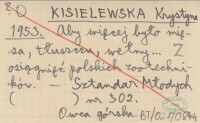 80 KISIELEWSKA Krystyna
1953. Aby więcej było mię-
sa, tłuszczu, wełny... Z
osiągnięć polskich zootechni-
ków. - Sztandar Młodych
( ) nr 302.
Owca górska. BT/O